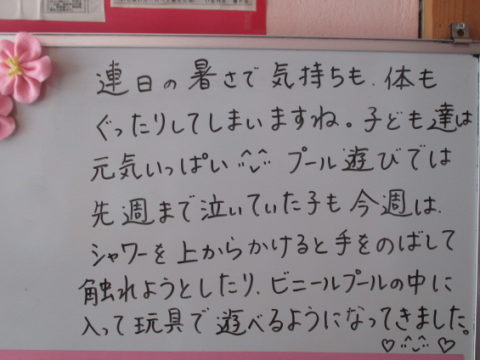 連日の暑さで気持ちも、体も
ぐったりしてしまいますね。子ども達は
元気いっぱい^^ プール遊びでは
先週まで泣いていた子も今週は、
シャワーを上からかけると手をのばして
触れようとしたり、ビニールプールの中に
入って玩具で遊べるようになってきました。
♡^^♡